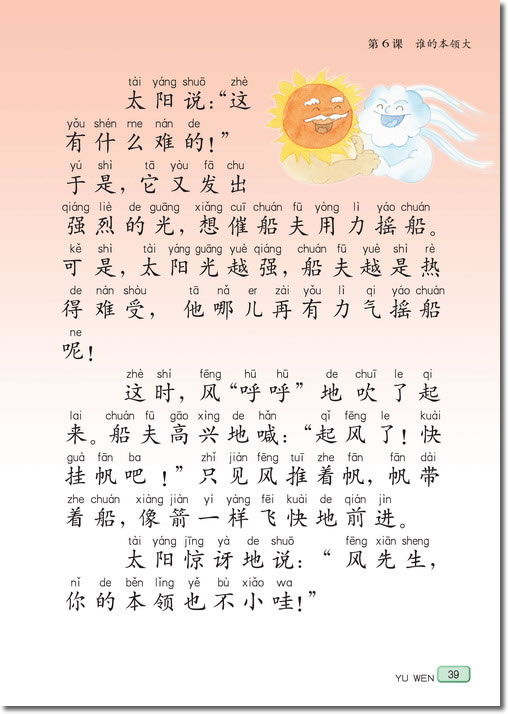 第6课 谁的本领大
tài yáng shuō zhè
太阳说：“这
yǒu shén me nán de
有什么难的！”
yú shì tā yòu fā chu
于是，它又发出
qiáng liè de guāng xiǎng cuī chuán fū yòng lì yáo chuán
强烈的光，想催船夫用力摇船。
kě shì tài yáng guāng yuè qiáng chuán fū yuè shì rè
可是，太阳光越强，船夫越是热
de nán shòu tā nǎ er zài yǒu lì qi yáo chuán
得难受，他哪儿再有力气摇船
ne
呢！
zhè shí fēng hū hū de chuī le qi
这时，风“呼呼”地吹了起
lai chuán fū gāo xìng de hǎn qǐ fēng le kuài
来。船夫高兴地喊：“起风了！快
guà fān ba zhǐ jiàn fēng tuī zhe fān fān dài
挂帆吧！”只见风推着帆，帆带
zhe chuán xiàng jiàn yí yàng fēi kuài de qián jìn
着船，像箭一样飞快地前进。
tài yáng jīng yà de shuō fēng xiān sheng
太阳惊讶地说：“风先生，
nǐ de běn lǐng yě bù xiǎo wa
你的本领也不小哇！”
YU WEN 39